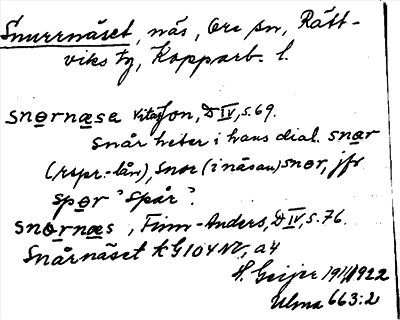 Snurrnäset, näs, Ore sn, Rätt-
viks tg, Kopparb. l.
snornæsa Vitas Jon, D IV, s. 69.
snår heter i hans dial. snɑr
(rspr-lån), snor (i näsan) snor, jfr
spor 'spår'.
snornæs, Finn-Anders, D IV, s. 76.
Snårnäset kG 104 NV, a4
H. Geijer 1911/1922
Ulma 663:2